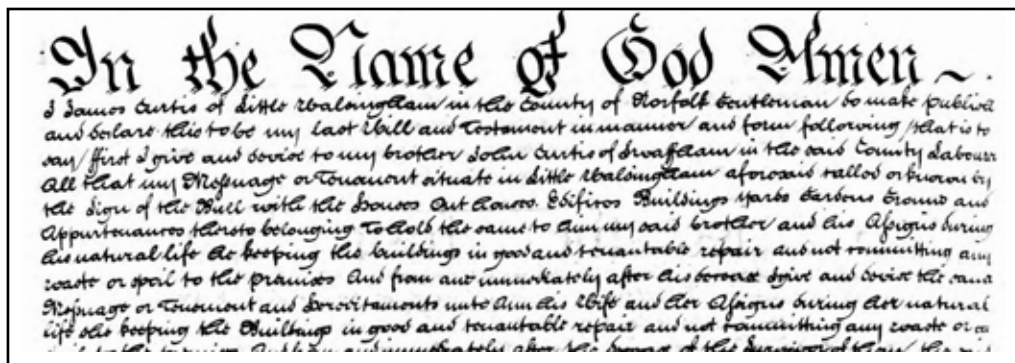 In the Name of God Amen ~.
I James Curtis of Little Walsingham in the County of Norfolk Gentleman do make publish
and declare this to be my last Will and Testament in manner and form following /that is to
say/ ffirst I give and devise to my brother John Curtis of Swaffham in the said County Labourer
All that my Messuage or Tenement situate in Little Walsingham aforesaid called or known by
the Sign of the Bull with the Houses Out houses Edifices Buildings Yards Gardens Ground and
Appurtenances thereto belonging To hold the same to him my said brother and his Assigns during
his natural life he keeping the buildings in good and tenantable repair and not committing any
waste or spoil to the premises And from and immediately after his decease I give and devise the same
Messuage or Tenement and Hereditaments unto Ann his Wife and her Assigns during her natural
life she keeping the Buildings in good and tenantable repair and not committing any waste or
to the premises And from and immediately after the decease of the Survivor of them the said